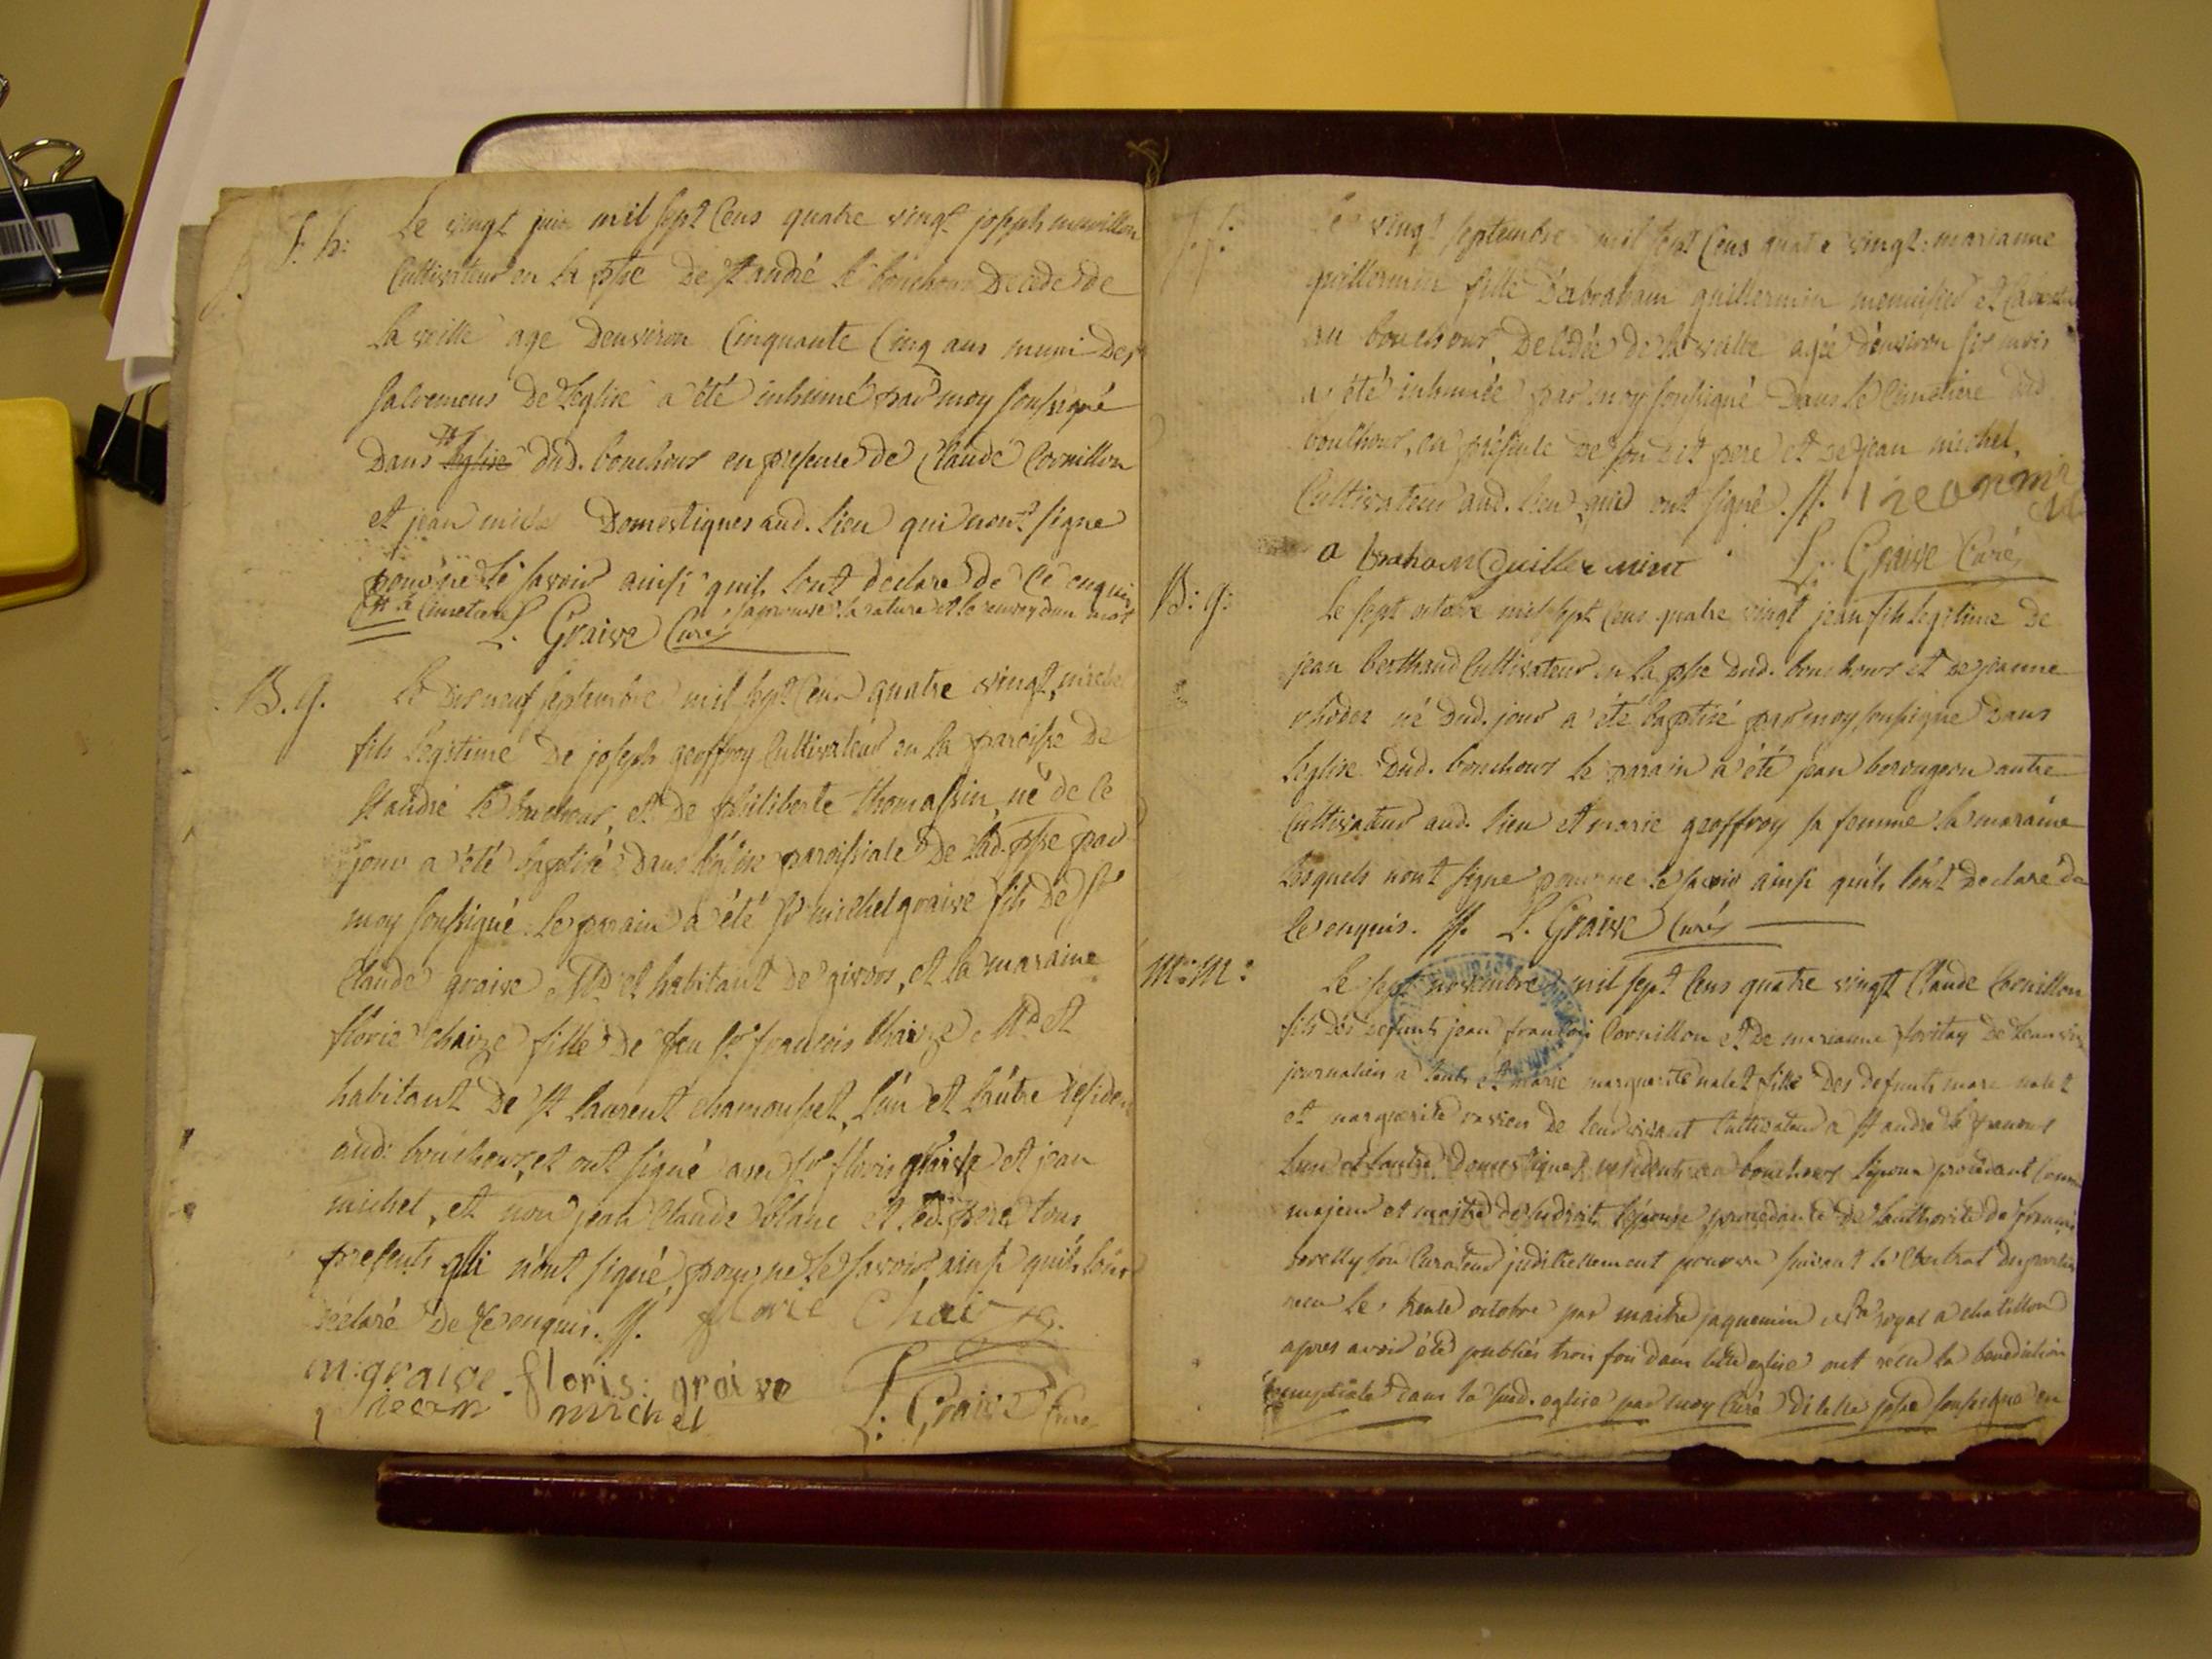 S. h:
Le vingt juin mil sept Cens quatre vingt joseph
Cultivateur en la psse de St andré le bouchoux Decedé de
la veille age Denviron Cinquante Cinq ans muni des
sacremens De Leglise a été inhumé par moy soussigné
Dans leglise dud. bouchoux en presence de Claude Cornillon
et jean michel Domestiques aud. lieu qui n'ont signé
pour ne le savoir ainsi quils lont declaré de ce enquis
le Cimetiere japprouve la rature et le renvoy dun mot
L. Graive Curé
B. g.
Le dix neuf septembre mil sept Cens quatre vingt, michel
fils legitime De joseph geoffroy Cultivateur en la paroisse de
St andré le bouchoux, et de philiberte thomassin, né de ce
jour a été baptisé dans l'église paroissiale De lad. psse par
moy soussigné. Le parain a été Sr michel graive fils de Sr
Claude graive Md et habitant de givors, et la maraine
florie chaize fille De feu Sr francois Chaize Md et
habitant De St laurent chamousset, l'un et l'autre residen
aud. bouchoux, et ont signé avec Sr floris graive et jean
michel, et non jean Claude blanc et led. pere tous
presents qui n'ont signé pour ne le savoir, ainsi quils l'ont
declaré De ce enquis. //. florie Chaize.
m: graive floris: graive
jaean michel L. Graive Curé
Le vingt septembre mil sept Cens quatre vingt: marianne
guillermin fille D'abraham guillermin menuisier et
au bouchoux, Decedée de la veille agée d'environ six mois
a été inhumée par moy soussigné Dans le Cimetiere dud
bouchoux, en présence de son dit pere et de jean michel,
Cultivateur aud. lieu, qui ont signé. //.
a braham Guillermint L. Graive Curé
B: g:
Le sept octobre mil sept Cens quatre vingt jean fils legitime De
jean berthaud Cultivateur en la psse Dud. bouchoux et de jeanne
né Dud. jour a été baptisé par moy soussigné Dans
leglise Dud. bouchoux le parain a été jean autre
Cultivateur aud. lieu et marie geoffroy sa femme la maraine
lesquels n'ont signé pour ne le savoir ainsi quils l'ont declaré de
ce enquis. //. L. Graive Curé
M: M:
Le sept novembre mil sept Cens quatre vingt Claude Cornillon
fils des defunts jean francois Cornillon et De marianne De leur vivant
journaliers a et marie marguerite nalet fille Des defunts marc nalet
et marguerite de leur vivant Cultivateur a St andré le
l'un et l'autre Domestiques residents au bouchoux l'epoux procedant Comme
majeur et maitre de ses droits l'épouse procedante de l'authorité de francois
son Curateur judiciellement pourvu suivant le Contrat
recu le trente octobre par maitre jaquemin Nre royal a chatillon
apres avoir été publiés trois fois dans eglise ont recu la benediction
nuptiale dans la susd. eglise par moy Curé Dicelle psse soussigné en